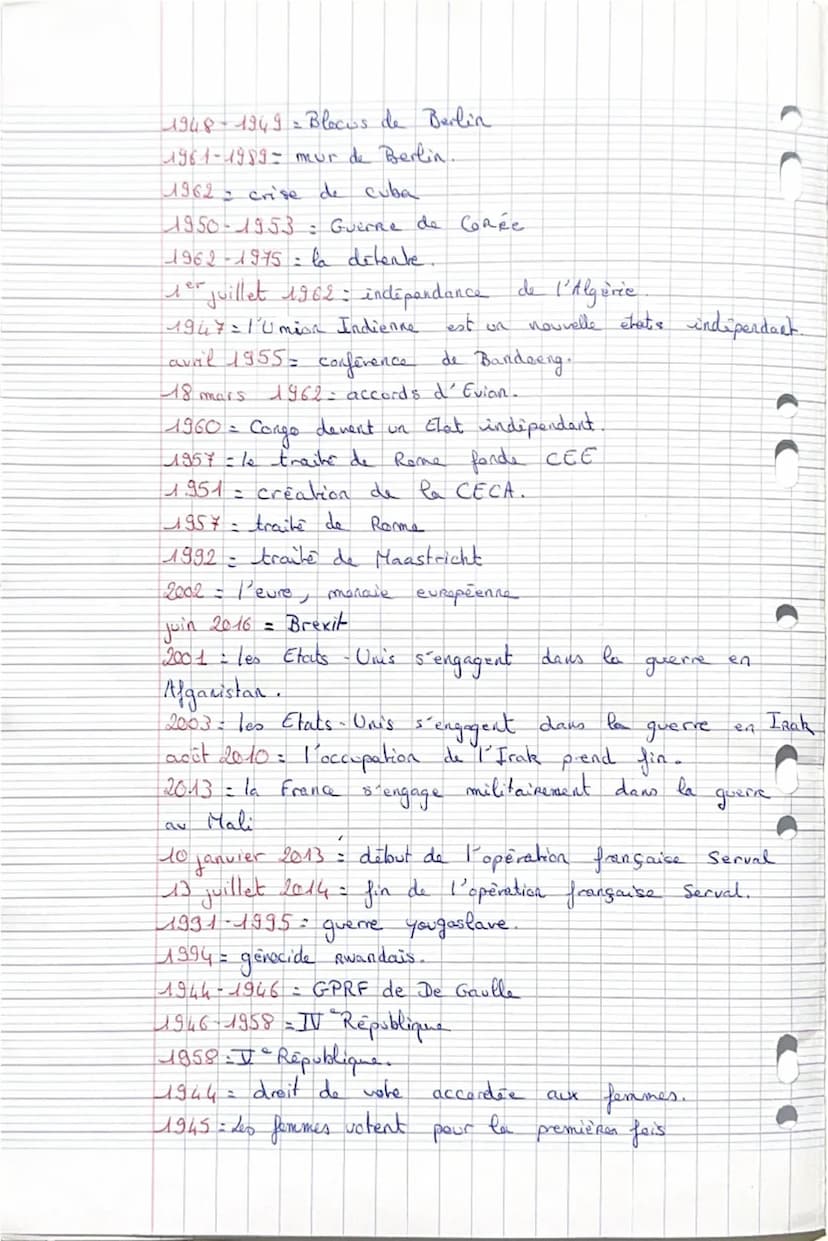 1948-1949 = Blocus de Berlin
1961-1989 = mur de Berlin.
1962 = crise de cuba
1950-1953 = Guerre de Corée
1962-1975 = la détente.
1er juillet 1962 = indépendance de l'Algérie.
1947 = l'Union Indienne est un nouvelle états indépendant.
avril 1955 = conférence de Bandoeng.
18 mars 1962 = accords d'Evian.
1960 = Congo devent un Etat indépendant.
1957 = le traité de Rome fonde CEE
1951 = création de la CECA.
1957 = traité de Rome
1992 = traité de Maastricht
2002 = l'euro, monaie européenne
juin 2016 = Brexit
2001 = les Etats-Unis s'engagent dans la guerre en
Afganistan.
2003 = les Etats-Unis s'engagent dans la guerre en Irak
août 2010 = l'occupation de l'Irak prend fin.
2013 = la France s'engage militairement dans la guerre
au Mali
10 janvier 2013 = début de l'opération française Serval
13 juillet 2014 = fin de l'opération française Serval.
1991-1995 = guerre yougoslave.
1994 = génocide Rwandais.
1944-1946 = GPRF de De Gaulle
1946-1958 = IVe République
1958 = Ve République.
1944 = droit de vote accordée aux femmes.
1945 = Les femmes votent pour la premières fois